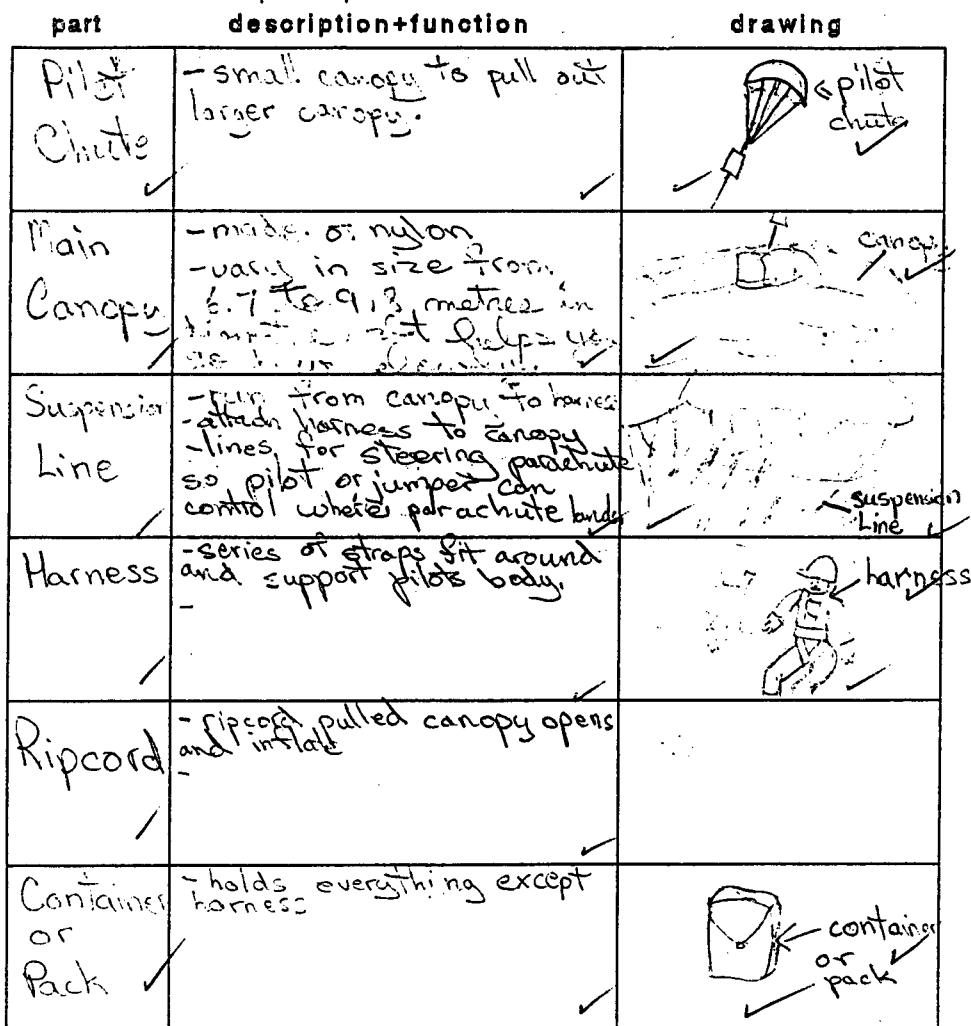 part description+function drawing
Pilot
Chute
- small canopy to pull out
larger canopy.
pilot
chute
Main
Canopy
- made of nylon
- vary in size from
6.7 to 9.? metres in
helps you
canopy
Suspension
Line
- run from canopy to harness
- attach harness to canopy
- lines for steering parachute
so pilot or jumper can
control where parachute lands
suspension
Line
Harness
- series of straps fit around
and support pilots body.
-
harness
Ripcord
- ripcord pulled canopy opens
and inflate
-
Container
or
Pack
- holds everything except
harness
container
or
pack